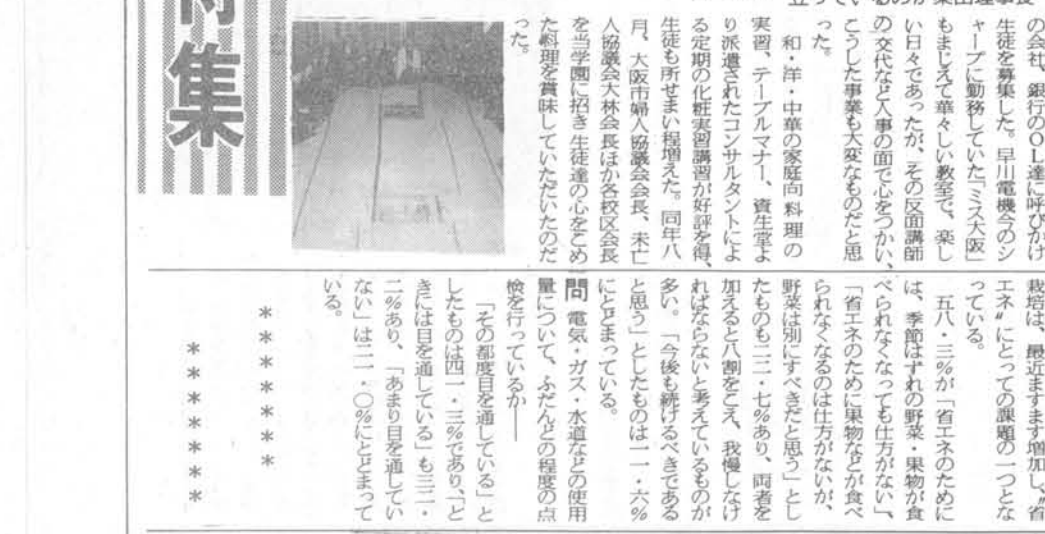 の会社、銀行のOL達に呼びかけ
生徒を募集した。早川電機今のシ
ャープに勤務していた「ミス大阪」
もまじえて華々しい教室で、楽し
い日々であったが、その反面講師
の交代など人事の面で心をつかい、
こうした事業も大変なものだと思
った。
和・洋・中華の家庭向料理の
実習、テーブルマナー、資生堂よ
り派遣されたコンサルタントによ
る定期の化粧実習講習が好評を得、
生徒も所せまい程増えた。同年八
月、大阪市婦人協議会会長、未亡
人協議会大林会長ほか各校区会長
を当学園に招き生徒達の心をこめ
た料理を賞味していただいたのだ
った。
集
栽培は、最近ますます増加し、〝省
エネ〟にとっての課題の一つとな
っている。
五八・三%が「省エネのために
は、季節はずれの野菜・果物が食
べられなくなっても仕方がない」、
「省エネのために果物などが食べ
られなくなるのは仕方がないが、
野菜は別にすべきだと思う」とし
たものも二二・七%あり、両者を
加えると八割をこえ、我慢しなけ
ればならないと考えているものが
多い。「今後も続けるべきである
と思う」としたものは一一・六%
にとどまっている。
問 電気・ガス・水道などの使用
量について、ふだんどの程度の点
検を行っているか――
「その都度目を通している」と
したものは四一・三%であり、「ど
きには目を通している」も三二・
二%あり、「あまり目を通してい
ない」は二一・〇%にとどまって
いる。
＊＊＊＊＊
＊＊＊＊＊＊＊